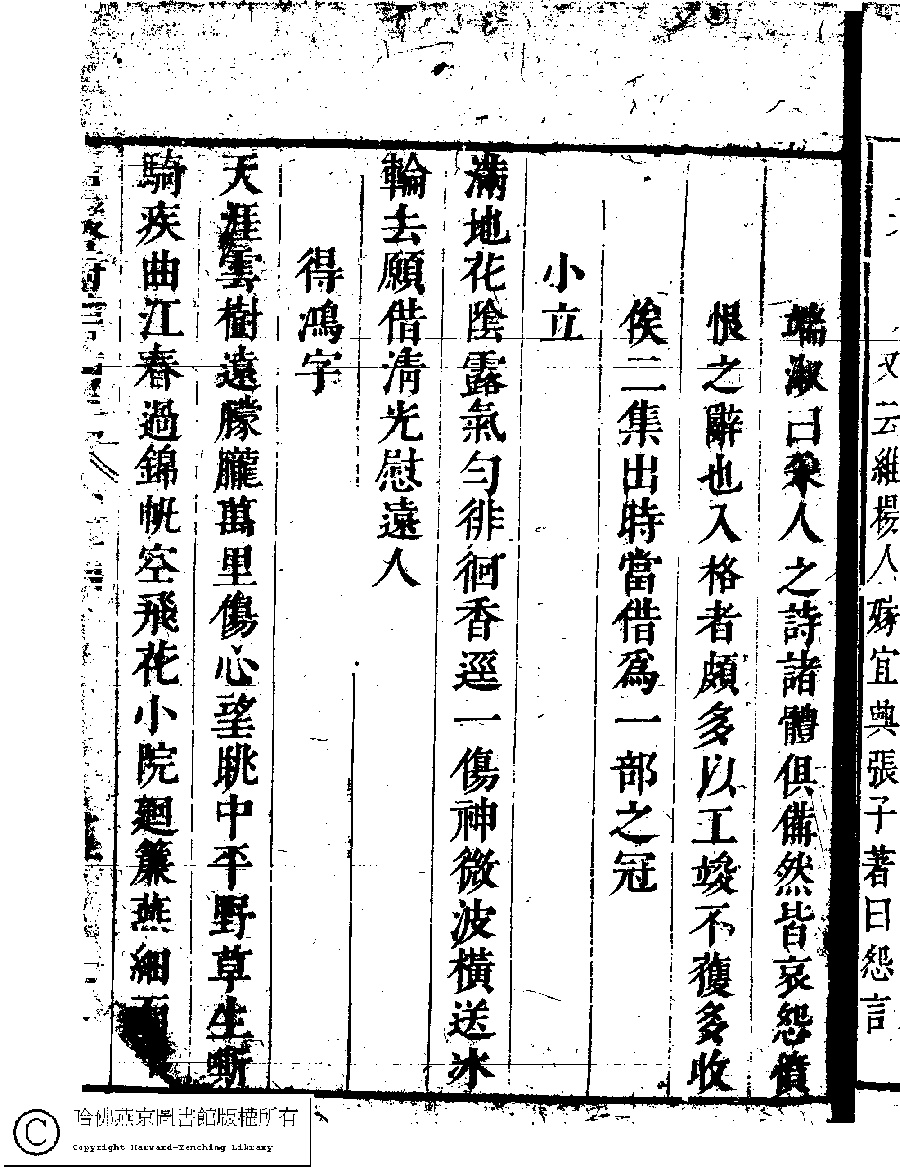 又云維揚人嫁宜興張子著曰怨言
端淑曰 人之詩諸體俱備然皆哀怨憤
恨之辭也入格者頗多以工竣不復多收
俟二集出時當借爲一部之冠
小立
滿地花陰露氣勻徘徊香逕一傷神微波橫送冰
輪去願借淸光慰遠人
得鴻字
天涯雲樹遠朦朧萬里傷心望眺中平野草生嘶
騎疾曲江春過錦帆空飛花小院廻簾燕細雨
哈佛燕京圖書館版權所有
Copyright Harvard-Yenching Library